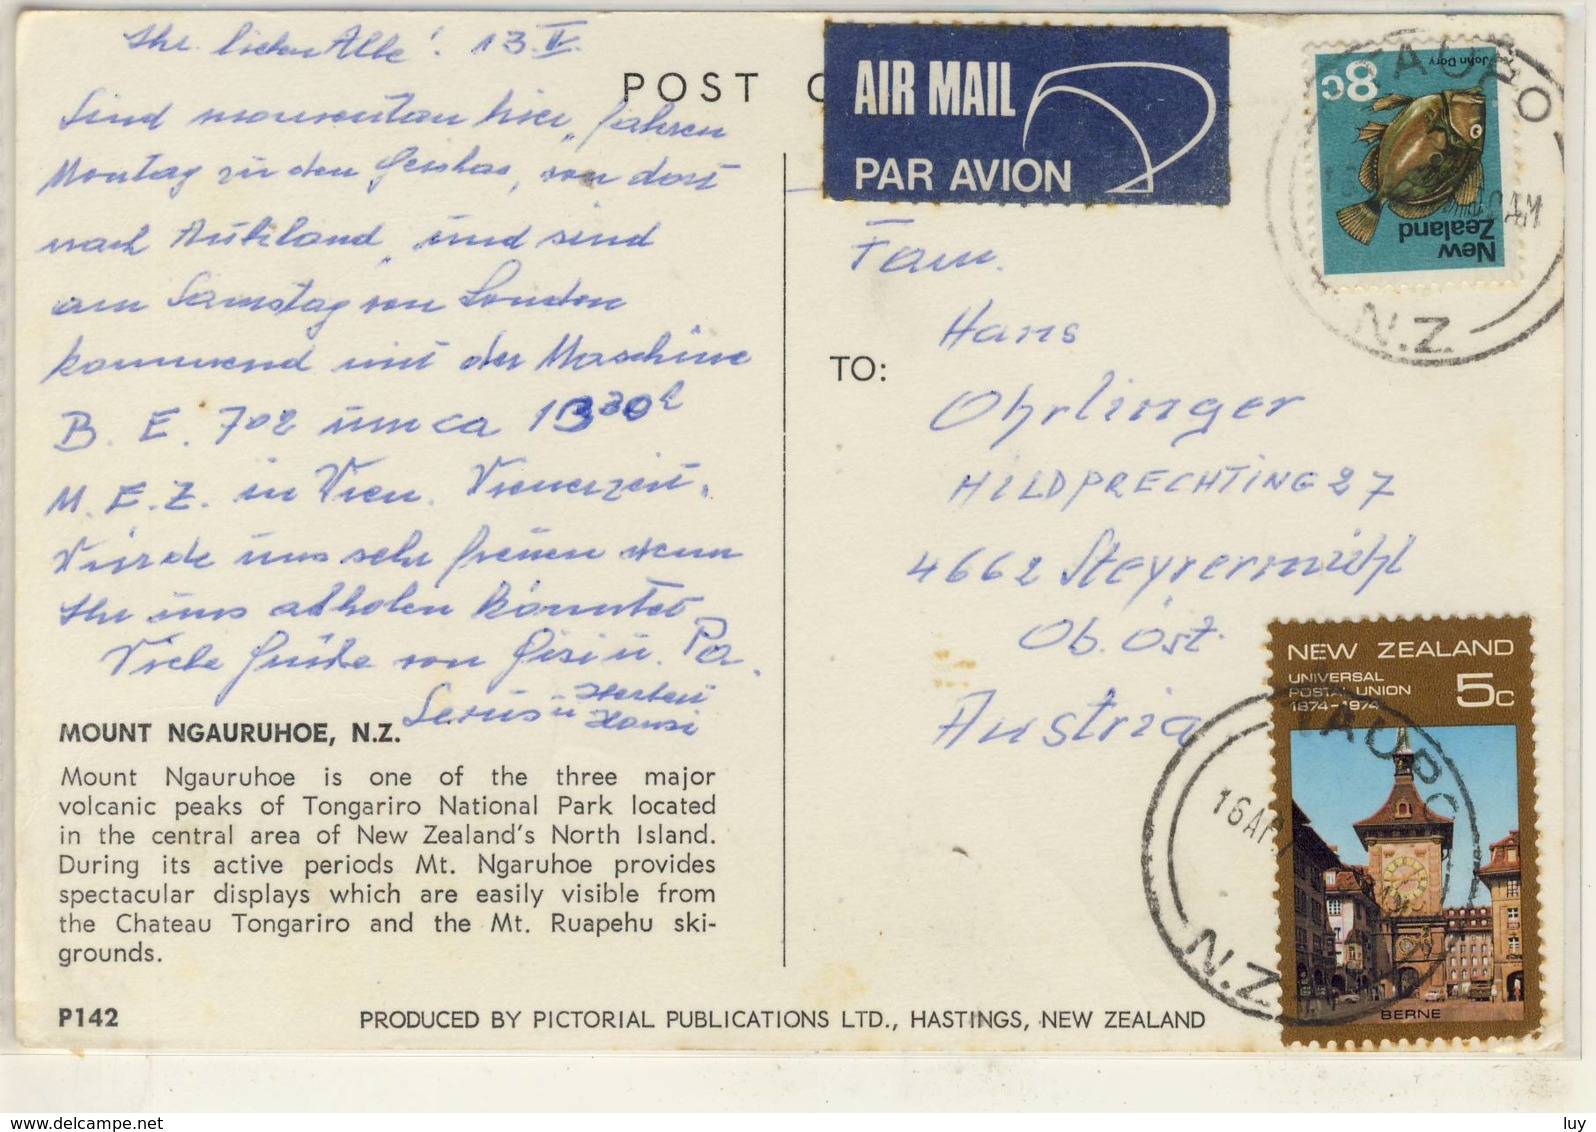 Ihr lieben Alle! 13.IV.
Sind momentan hier, fahren
Montag zu den Geishas, von dort
nach Aukland, und sind
am Samstag von London
kommend mit der Maschine
B. E. 702 um ca 13 30 h
M.E.Z. in Wien. Wienerzeit.
Würde uns sehr freuen wenn
Ihr uns abholen könntet
Viele Grüße von Gisi u. Pa.
Servus u Herbert
Hansi
MOUNT NGAURUHOE, N.Z.
Mount Ngauruhoe is one of the three major
volcanic peaks of Tongariro National Park located
in the central area of New Zealand's North Island.
During its active periods Mt. Ngaruhoe provides
spectacular displays which are easily visible from
the Chateau Tongariro and the Mt. Ruapehu ski-
grounds.
P142
PRODUCED BY PICTORIAL PUBLICATIONS LTD., HASTINGS, NEW ZEALAND
POST C
AIR MAIL
PAR AVION
TO:
Fam.
Hans
Ohrlinger
HILDPRECHTING 27
4662 Steyrermühl
Ob. Öst.
Austria
8c
John Dory
New
Zealand
TAUPO
AM
N.Z.
NEW ZEALAND
UNIVERSAL
POSTAL UNION
1874-1974
5c
BERNE
TAUPO
16AP
N.Z.
luy
www.delcampe.net